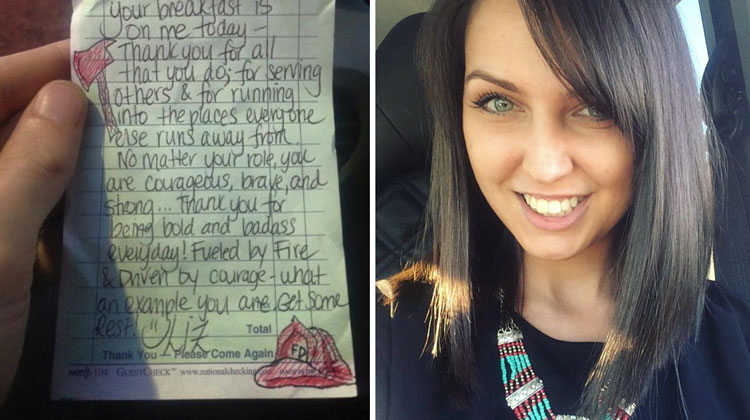 your breakfast is
on me today -
Thank you for all
that you do; for serving
others & for running
into the places everyone
else runs away from.
No matter your role, you
are courageous, brave, and
strong... Thank you for
being bold and badass
everyday! Fueled by Fire
& Driven by courage - what
an example you are. Get some
Rest! Liz
Total
FD
Thank You – Please Come Again
104 GUESTCHECK™ www.nationalchecking